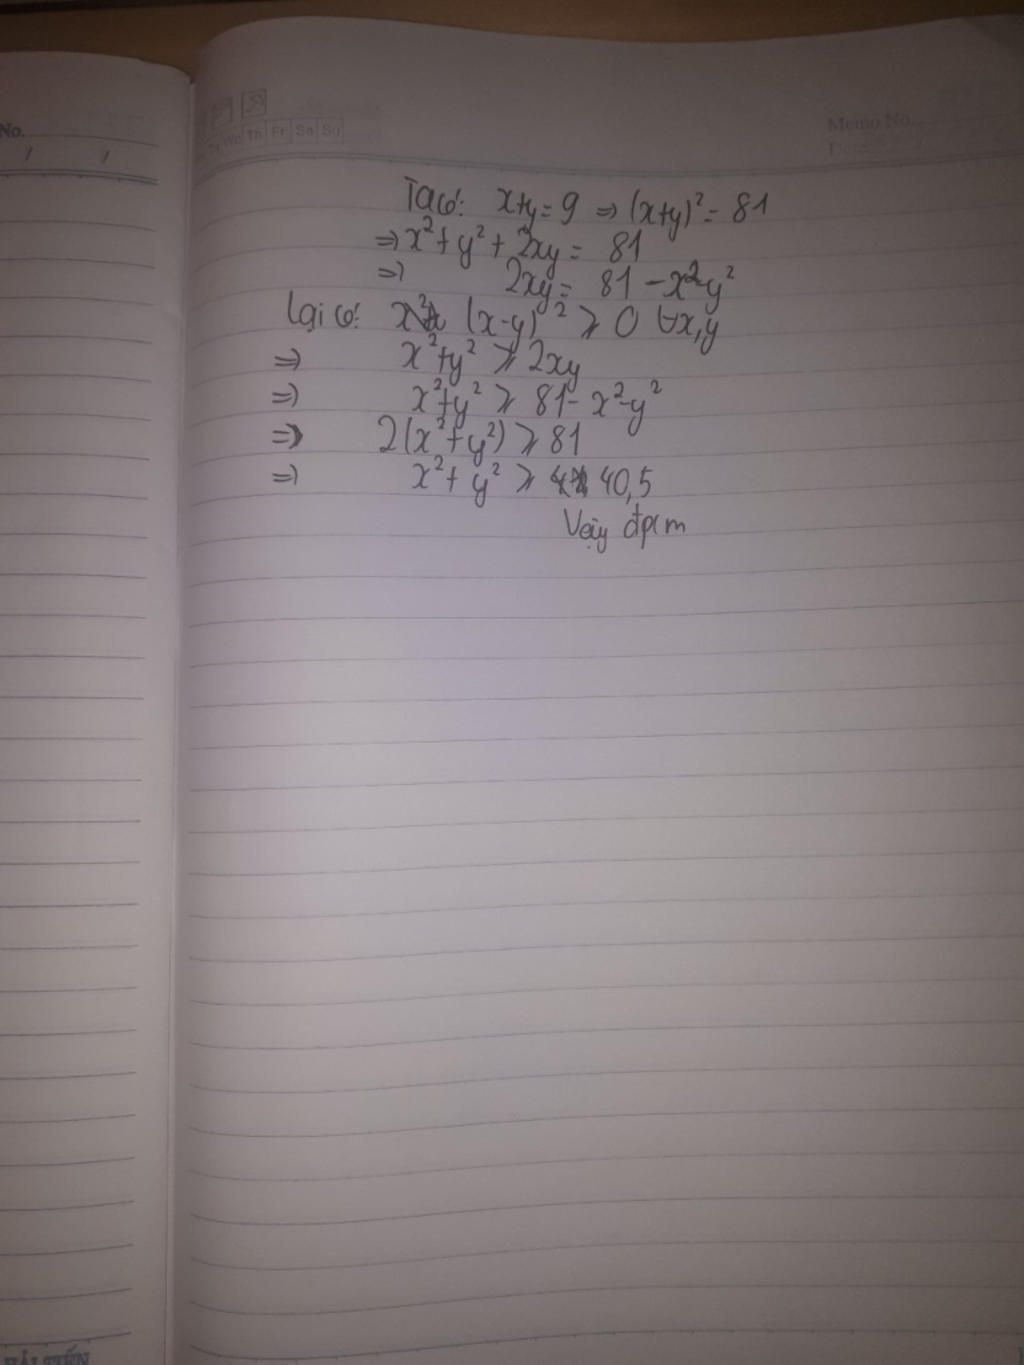 No.
We Th Fr Sa Su
Memo No.
Ta có: x+y=9 ⇒ (x+y)² = 81
⇒ x²+y²+2xy = 81
⇒ 2xy = 81-x²-y²
Lại có: (x-y)² ⩾ 0 ∀x,y
⇒ x²+y² ⩾ 2xy
⇒ x²+y² ⩾ 81-x²-y²
⇒ 2(x²+y²) ⩾ 81
⇒ x²+y² ⩾ 40,5
Vậy đpcm
HẢI TIẾN